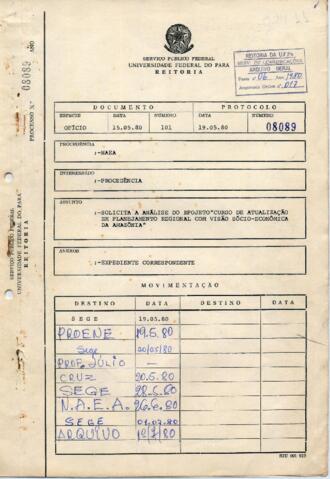 SERVIÇO PUBLICO FEDERAL
UNIVERSIDADE FEDERAL DO PARÁ
REITORIA
REITORIA DA UFPa
ARQUIVO GERAL
ANO
PROCESSO N.º 08089
SERVIÇO PUBLICO FEDERAL
UNIVERSIDADE FEDERAL DO PARÁ
REITORIA
DOCUMENTO PROTOCOLO
ESPÉCIE DATA NÚMERO DATA NÚMERO
OFÍCIO 15.05.80 101 19.05.80 08089
PROCEDÊNCIA
:-NAEA
INTERESSADO
:-PROCEDÊNCIA
ASSUNTO
:-SOLICITA A ANÁLISE DO RPOJETO"CURSO DE ATUALIZAÇÃO
EM PLANEJAMENTO REGIONAL COM VISÃO SÓCIO-ECONÔMICA
DA AMAZÔNIA"
ANEXOS
:-EXPEDIENTE CORRESPONDENTE
MOVIMENTAÇÃO
DESTINO DATA DESTINO DATA
SEGE 19.05.80
PROENE 19.5.80
Sege 20/05/80
PROF. JÚLIO —
CRUZ 20.5.80
SEGE 28.5.80
N.A.E.A. 26.6.80
SEGE 01.07.80
ARQUIVO